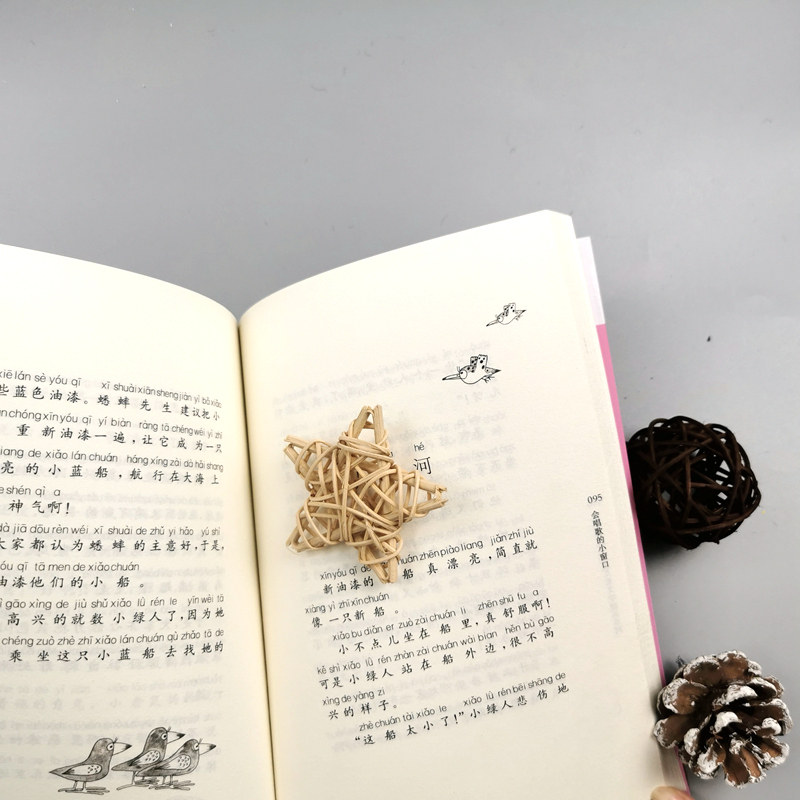 xiē lán sè yóu qī xī shuài xiān sheng jiàn yì bǎ xiǎo
些蓝色油漆。蟋蟀先生建议把小
chóng xīn yóu qī yí biàn ràng tā chéng wéi yì zhī
重新油漆一遍,让它成为一只
liang de xiǎo lán chuán háng xíng zài dà hǎi shang
亮的小蓝船,航行在大海上
shén qì a
神气啊!
dà jiā dōu rèn wéi xī shuài de zhǔ yi hǎo yú shì
大家都认为蟋蟀的主意好,于是,
yóu qī tā men de xiǎo chuán
油漆他们的小船。
gāo xìng de jiù shǔ xiǎo lǜ rén le yīn wèi tā
高兴的就数小绿人了,因为她
chéng zuò zhè zhī xiǎo lán chuán qù zhǎo tā de
乘坐这只小蓝船去找她的
hé
河
xīn yóu qī de chuán zhēn piào liang jiǎn zhí jiù
新油漆的船真漂亮,简直就
xiàng yì zhī xīn chuán
像一只新船。
xiǎo bu diǎn er zuò zài chuán li zhēn shū fu a
小不点儿坐在船里,真舒服啊!
kě shì xiǎo lǜ rén zhàn zài chuán wài bian hěn bù gāo
可是小绿人站在船外边,很不高
xìng de yàng zi
兴的样子。
zhè chuán tài xiǎo le xiǎo lǜ rén bēi shāng de
“这船太小了!”小绿人悲伤地
095
会唱歌的小窗口